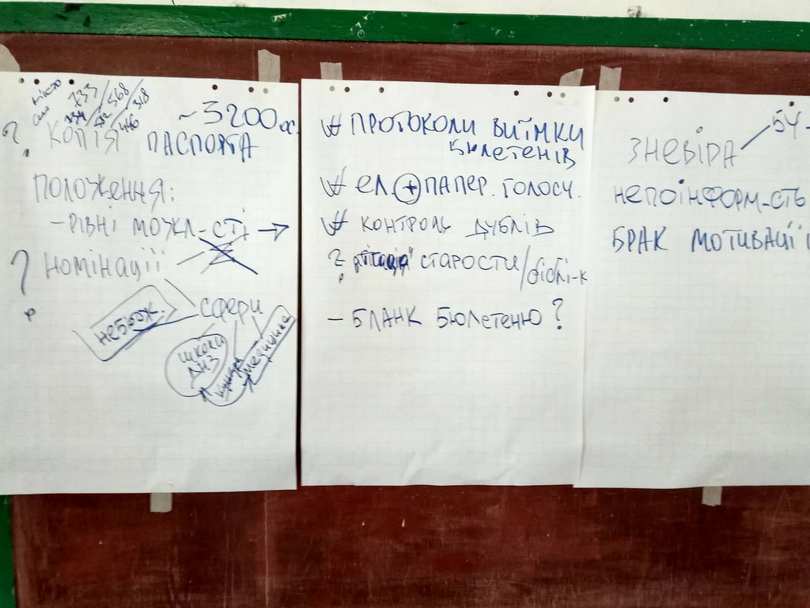 733/568/318
~3200 ос.
? КОПІЯ ПАСПОРТА
ПОЛОЖЕННЯ:
– РІВНІ МОЖЛ-СТІ →
? НОМІНАЦІЇ
СФЕРИ
ШКОЛИ
ДНЗ
медицина
ПРОТОКОЛИ ВИЇМКИ
БЮЛЕТЕНІВ
ЕЛ + ПАПЕР. ГОЛОСУ.
КОНТРОЛЬ ДУБЛІВ
? СТАРОСТИ/бібл-к
– БЛАНК БЮЛЕТЕНЮ?
ЗНЕВІРА
НЕПОІНФОРМ-СТЬ
БРАК МОТИВАЦІЇ